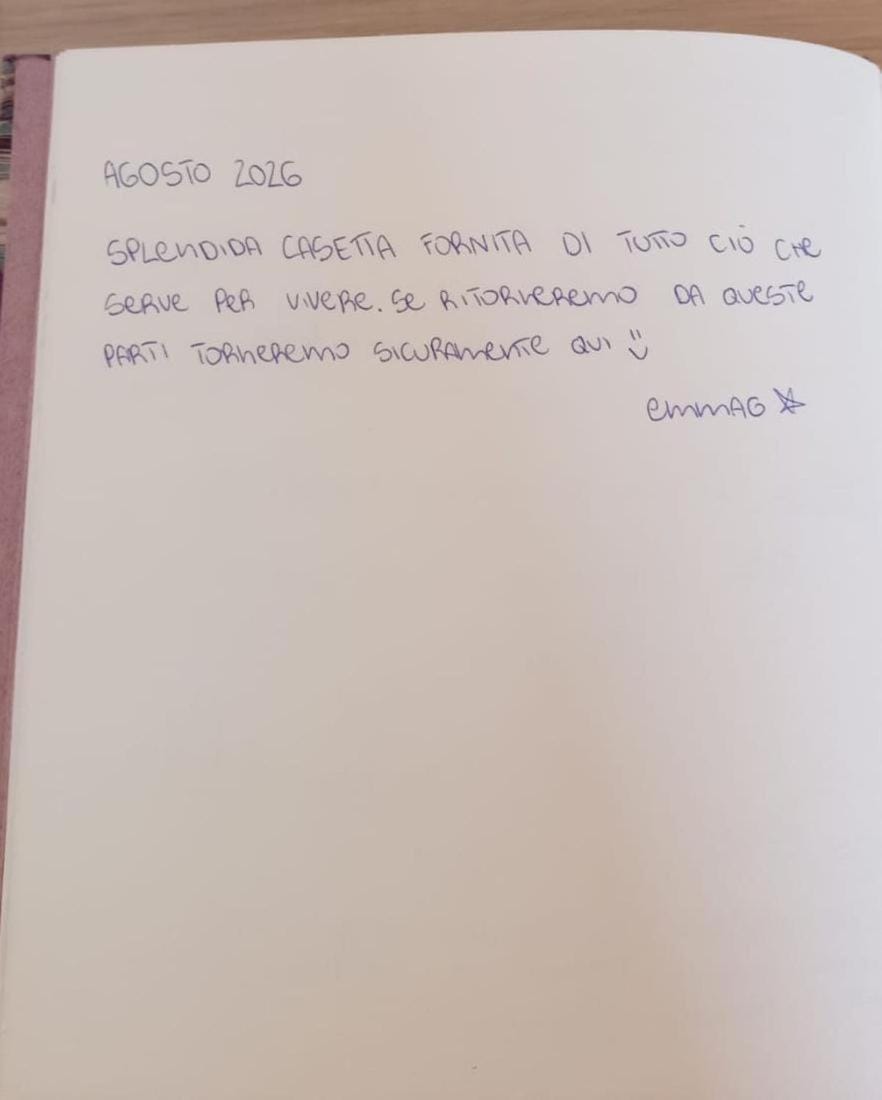 AGOSTO 2026
SPLENDIDA CASETTA FORNITA DI TUTTO CIÒ CHE
SERVE PER VIVERE. SE RITORNEREMO DA QUESTE
PARTI TORNEREMO SICURAMENTE QUI :)
EMMAG ☆